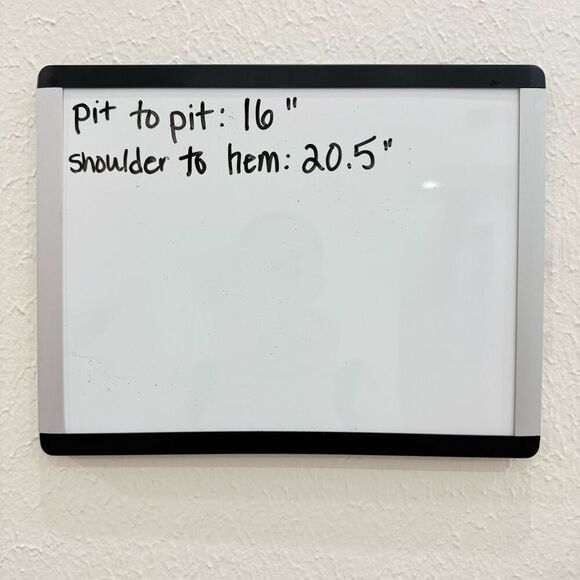 pit to pit: 16"
shoulder to hem: 20.5"